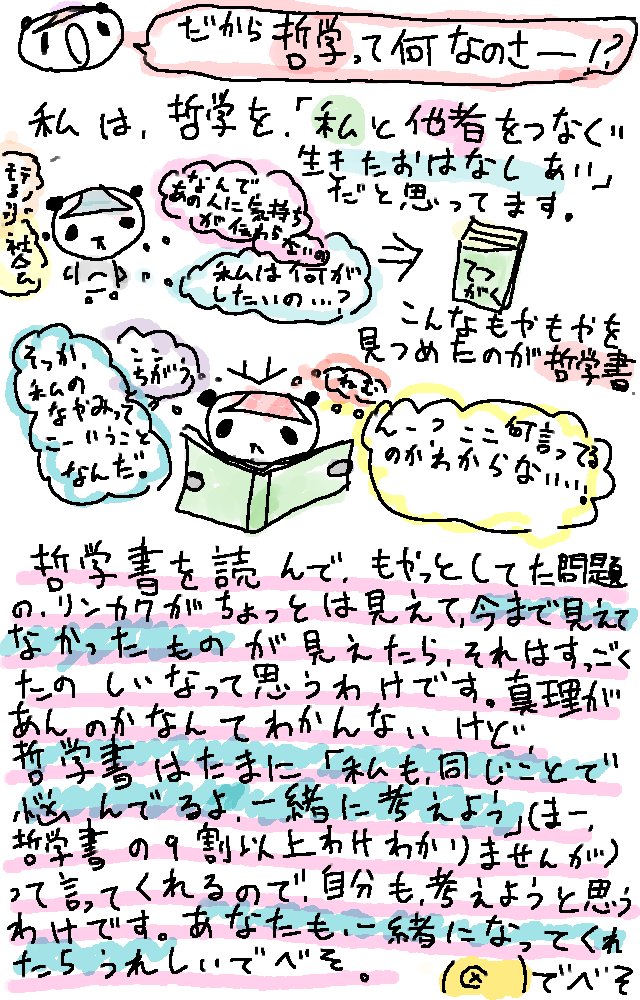 だから哲学って何なのさー!?
私は、哲学を、「私と他者をつなぐ
生きたおはなしあい」
だと思ってます。
なんで
あの人に気持ち
が伝わら
ないの
私は何が
したいの…?
てつ
がく
こんなもやもやを
見つめたのが哲学書.
そっか、
私の
なやみって
こーいうこと
なんだ。
ここ、
ちがう!
しねむ
んーっ ここ何言ってる
のかわからないいい!
哲学書を読んで、もやっとしてた問題
の、リンカクがちょっとは見えて、今まで見えて
なかったものが見えたら、それはすっごく
たのしいなって思うわけです。真理が
あんのかなんてわかんないけど、
哲学書はたまに「私も、同じことで
悩んでるよ、一緒に考えよう」(まー、
哲学書の9割以上わけわかりませんが)
って言ってくれるので、自分も、考えようと思う
わけです。あなたも、一緒になってくれ
たらうれしいでべそ。
でべそ